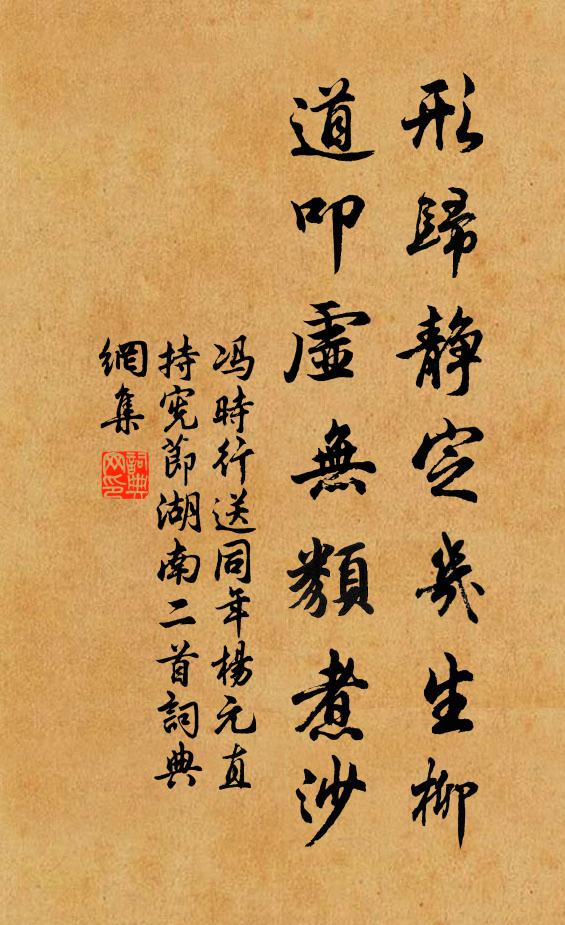 形歸静定幾生柳
道叩虛無類煮沙
冯時行送同年楊元直
持憲節湖南二首詞典
網集
詞典
網印